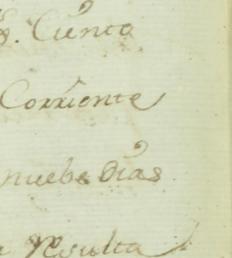 Ciento
Corriente
nuebe Dias
Resulta